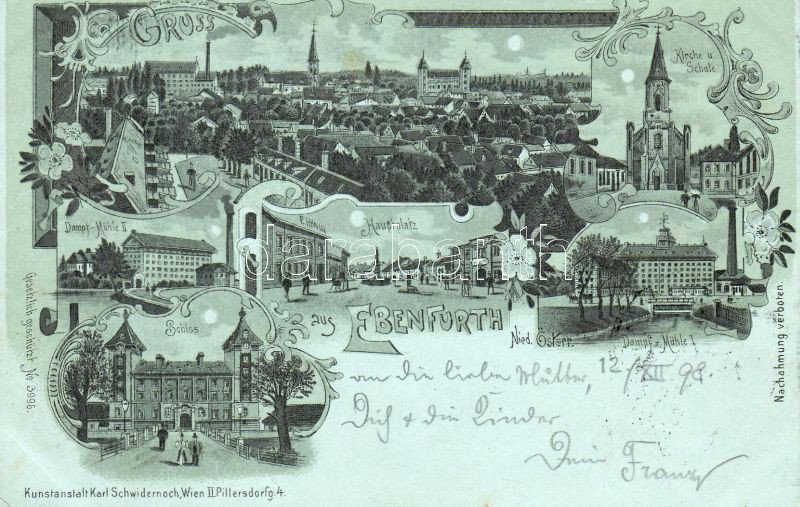 GRUSS
Kirche u.
Schule
Dampf-Mühle II
Hauptplatz
darabanth
aus EBENFURTH
Nied. Österr.
Dampf-Mühle I
Schloss
an die liebe Mutter, 12/XII 98
Dich & die Kinder
Dein Franz
Gesetzlich geschützt No 3996.
Nachahmung verboten.
Kunstanstalt Karl Schwidernoch, Wien II. Pillersdorfg. 4.